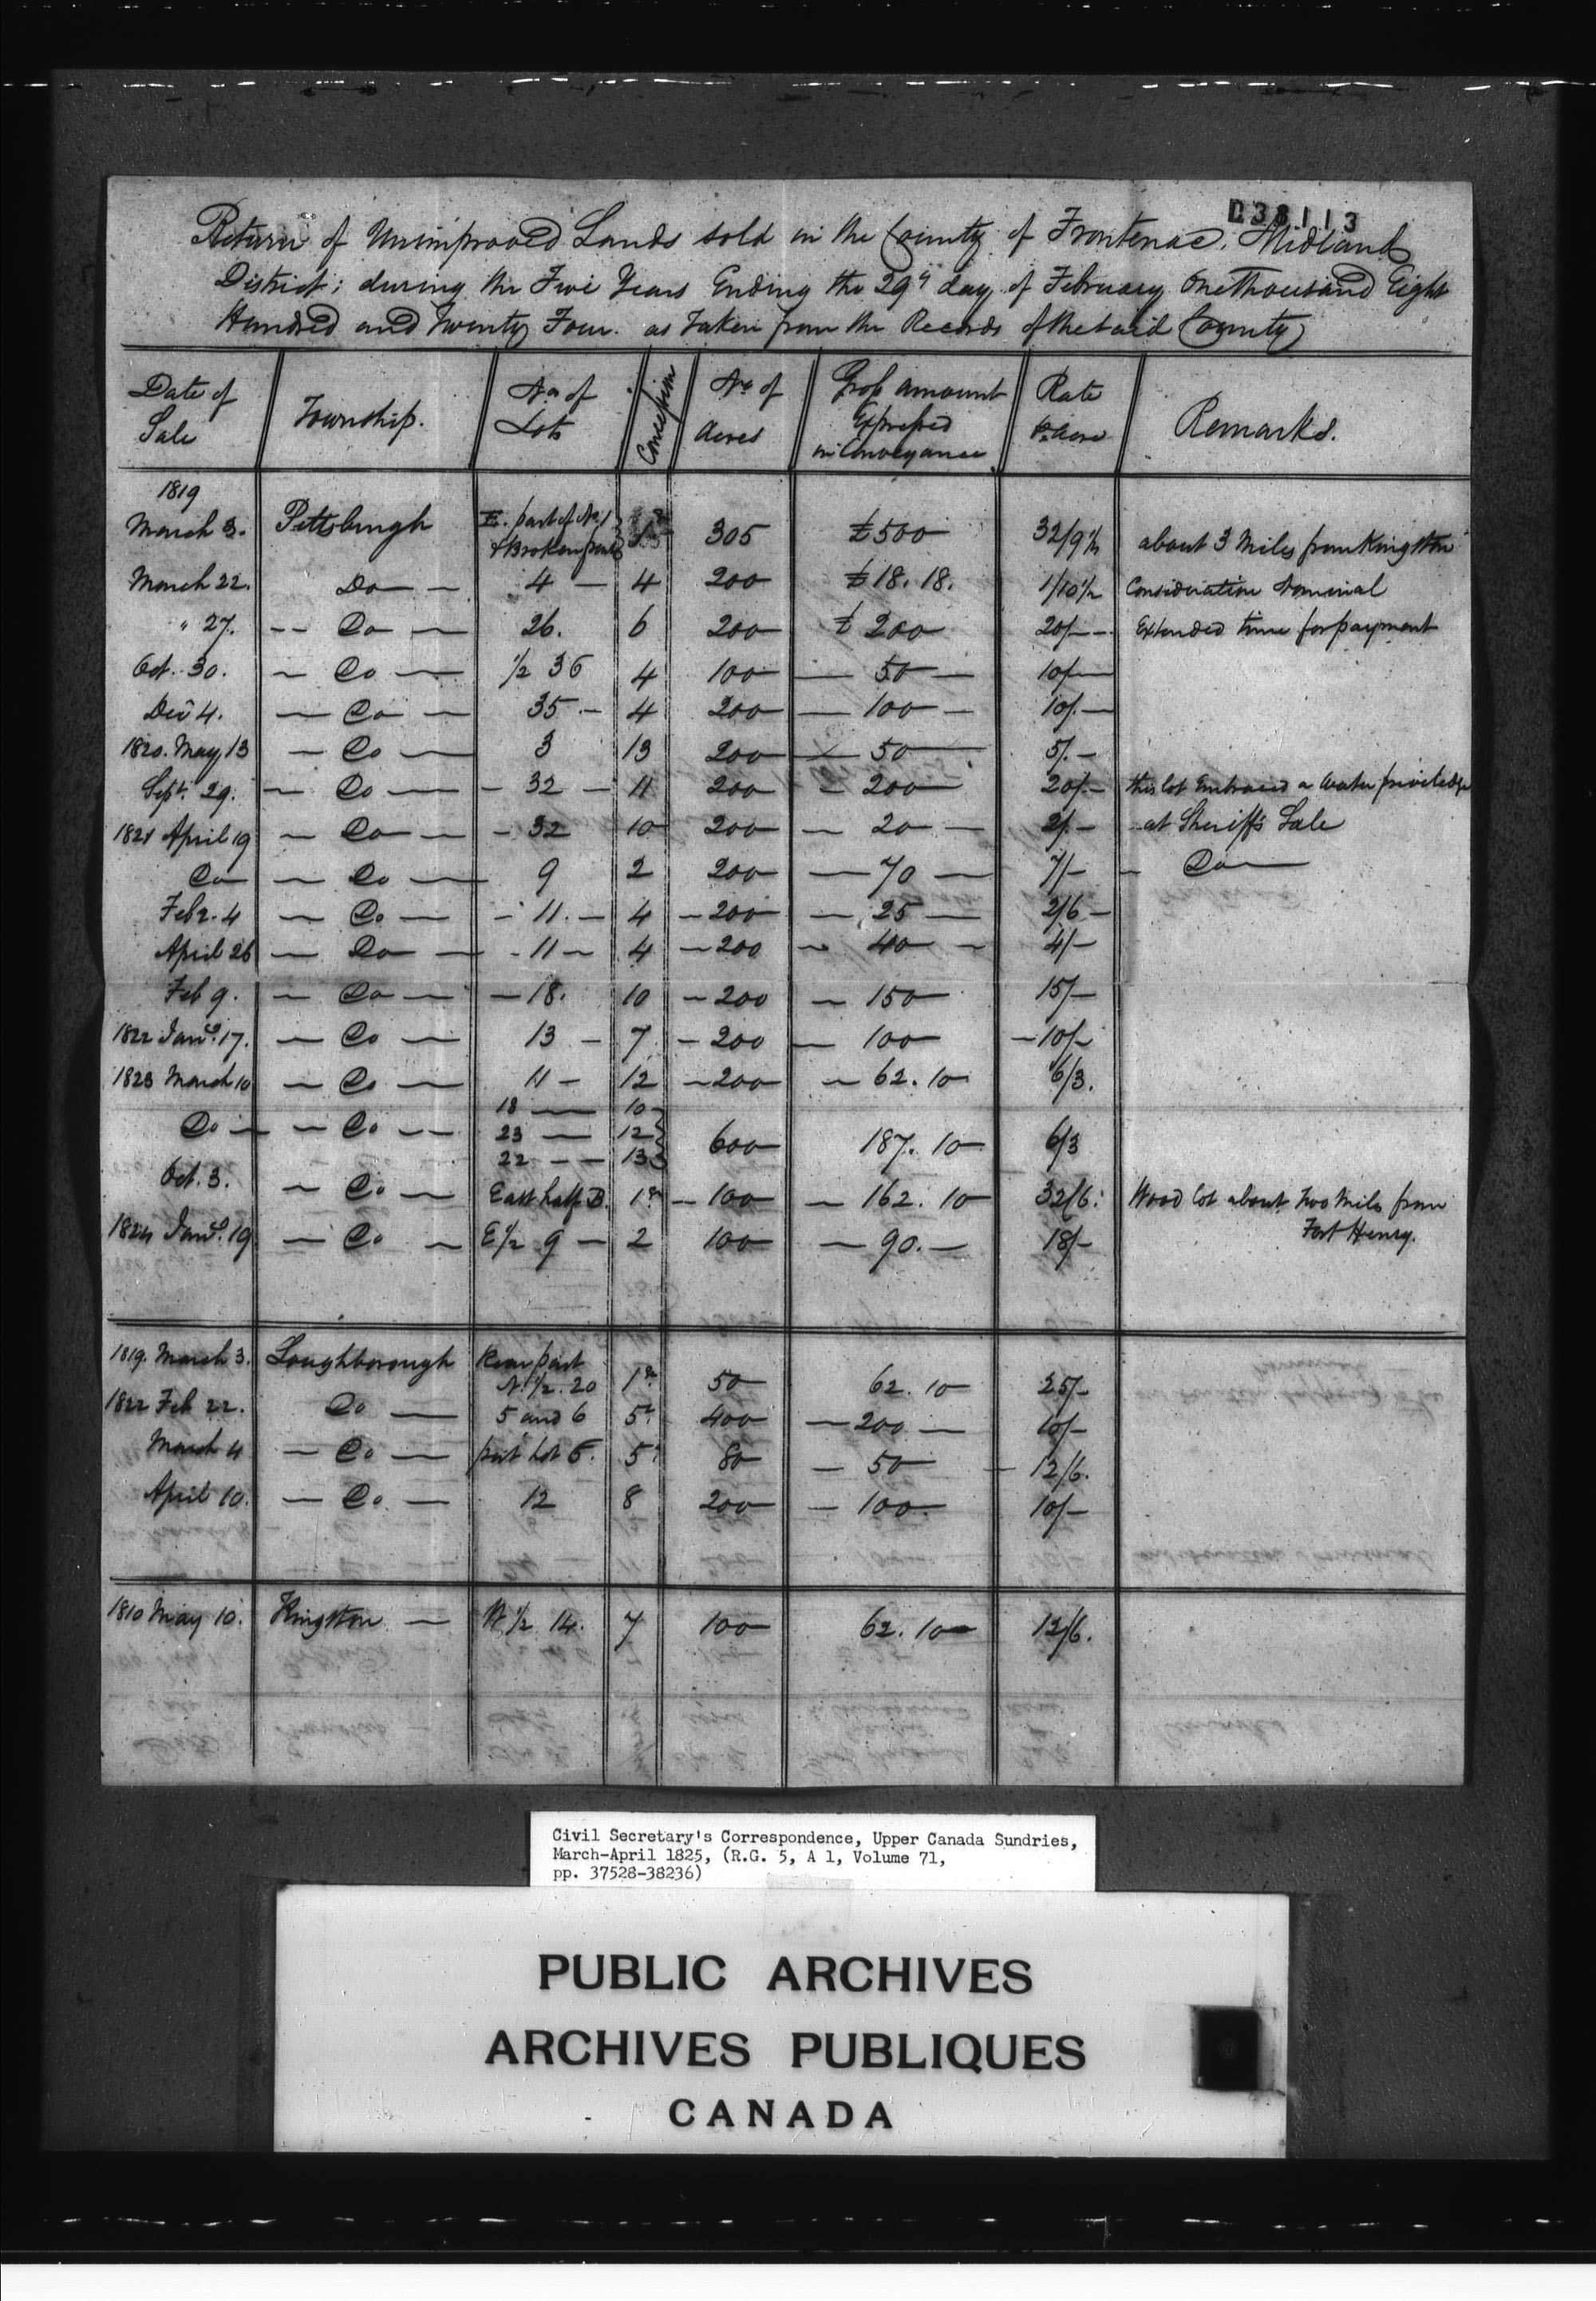 038113
Return of Unimproved Lands sold in the County of Frontenac, Midland
District; during the Five Years Ending the 29th day of February One thousand Eight
Hundred and Twenty Four. as taken from the Records of the said County
Date of Sale | Township. | No of Lots | Concession | No of Acres | Gross amount Expressed in Conveyance | Rate Pr Acre | Remarks.
1819
March 3. Pittsburgh E. part of No. 1 & Broken front 1st 305 £500 32/9½ about 3 Miles from Kingston
March 22. Do 4 4 200 £18.18. 1/10½ Consideration Nominal
" 27. Do 26. 6 200 £200 20/- Extended time for payment
Oct. 30. Do ½ 36 4 100 50 10/-
Decr 4. Do 35 4 200 100 10/-
1820. May 13 Do 3 13 200 50 5/-
Sept. 29. Do 32 11 200 200 20/- this lot Embraced a water priviledge
1821 April 19 Do 32 10 200 20 2/- at Sheriff's Sale
Do Do 9 2 200 70 7/- Do
Feb. 4 Do 11. 4 200 25 2/6
April 26 Do 11 4 200 40 4/-
Feb 9. Do 18. 10 200 150 15/-
1822 Jany. 17. Do 13 7 200 100 10/-
1823 March 10 Do 11 12 200 62.10 6/3.
18 10
Do Do 23 12 600 187.10 6/3
22 13
Oct. 3. Do East half B. 1st 100 162.10 32/6. Wood lot about two Miles from
Fort Henry.
1824 Jany. 19 Do E½ 9 2 100 90. 18/-
1819. March 3. Loughborough Rear part
N.½. 20 1st 50 62.10 25/-
1822 Feb 22. Do 5 and 6 5th 400 200 10/-
March 4 Do part Lot 5. 5th 80 50 12/6.
April 10. Do 12 8 200 100. 10/-
1810 May 10. Kingston W½ 14. 7 100 62.10 12/6.
Civil Secretary's Correspondence, Upper Canada Sundries,
March-April 1825, (R.G. 5, A 1, Volume 71,
pp. 37528-38236)
PUBLIC ARCHIVES
ARCHIVES PUBLIQUES
CANADA